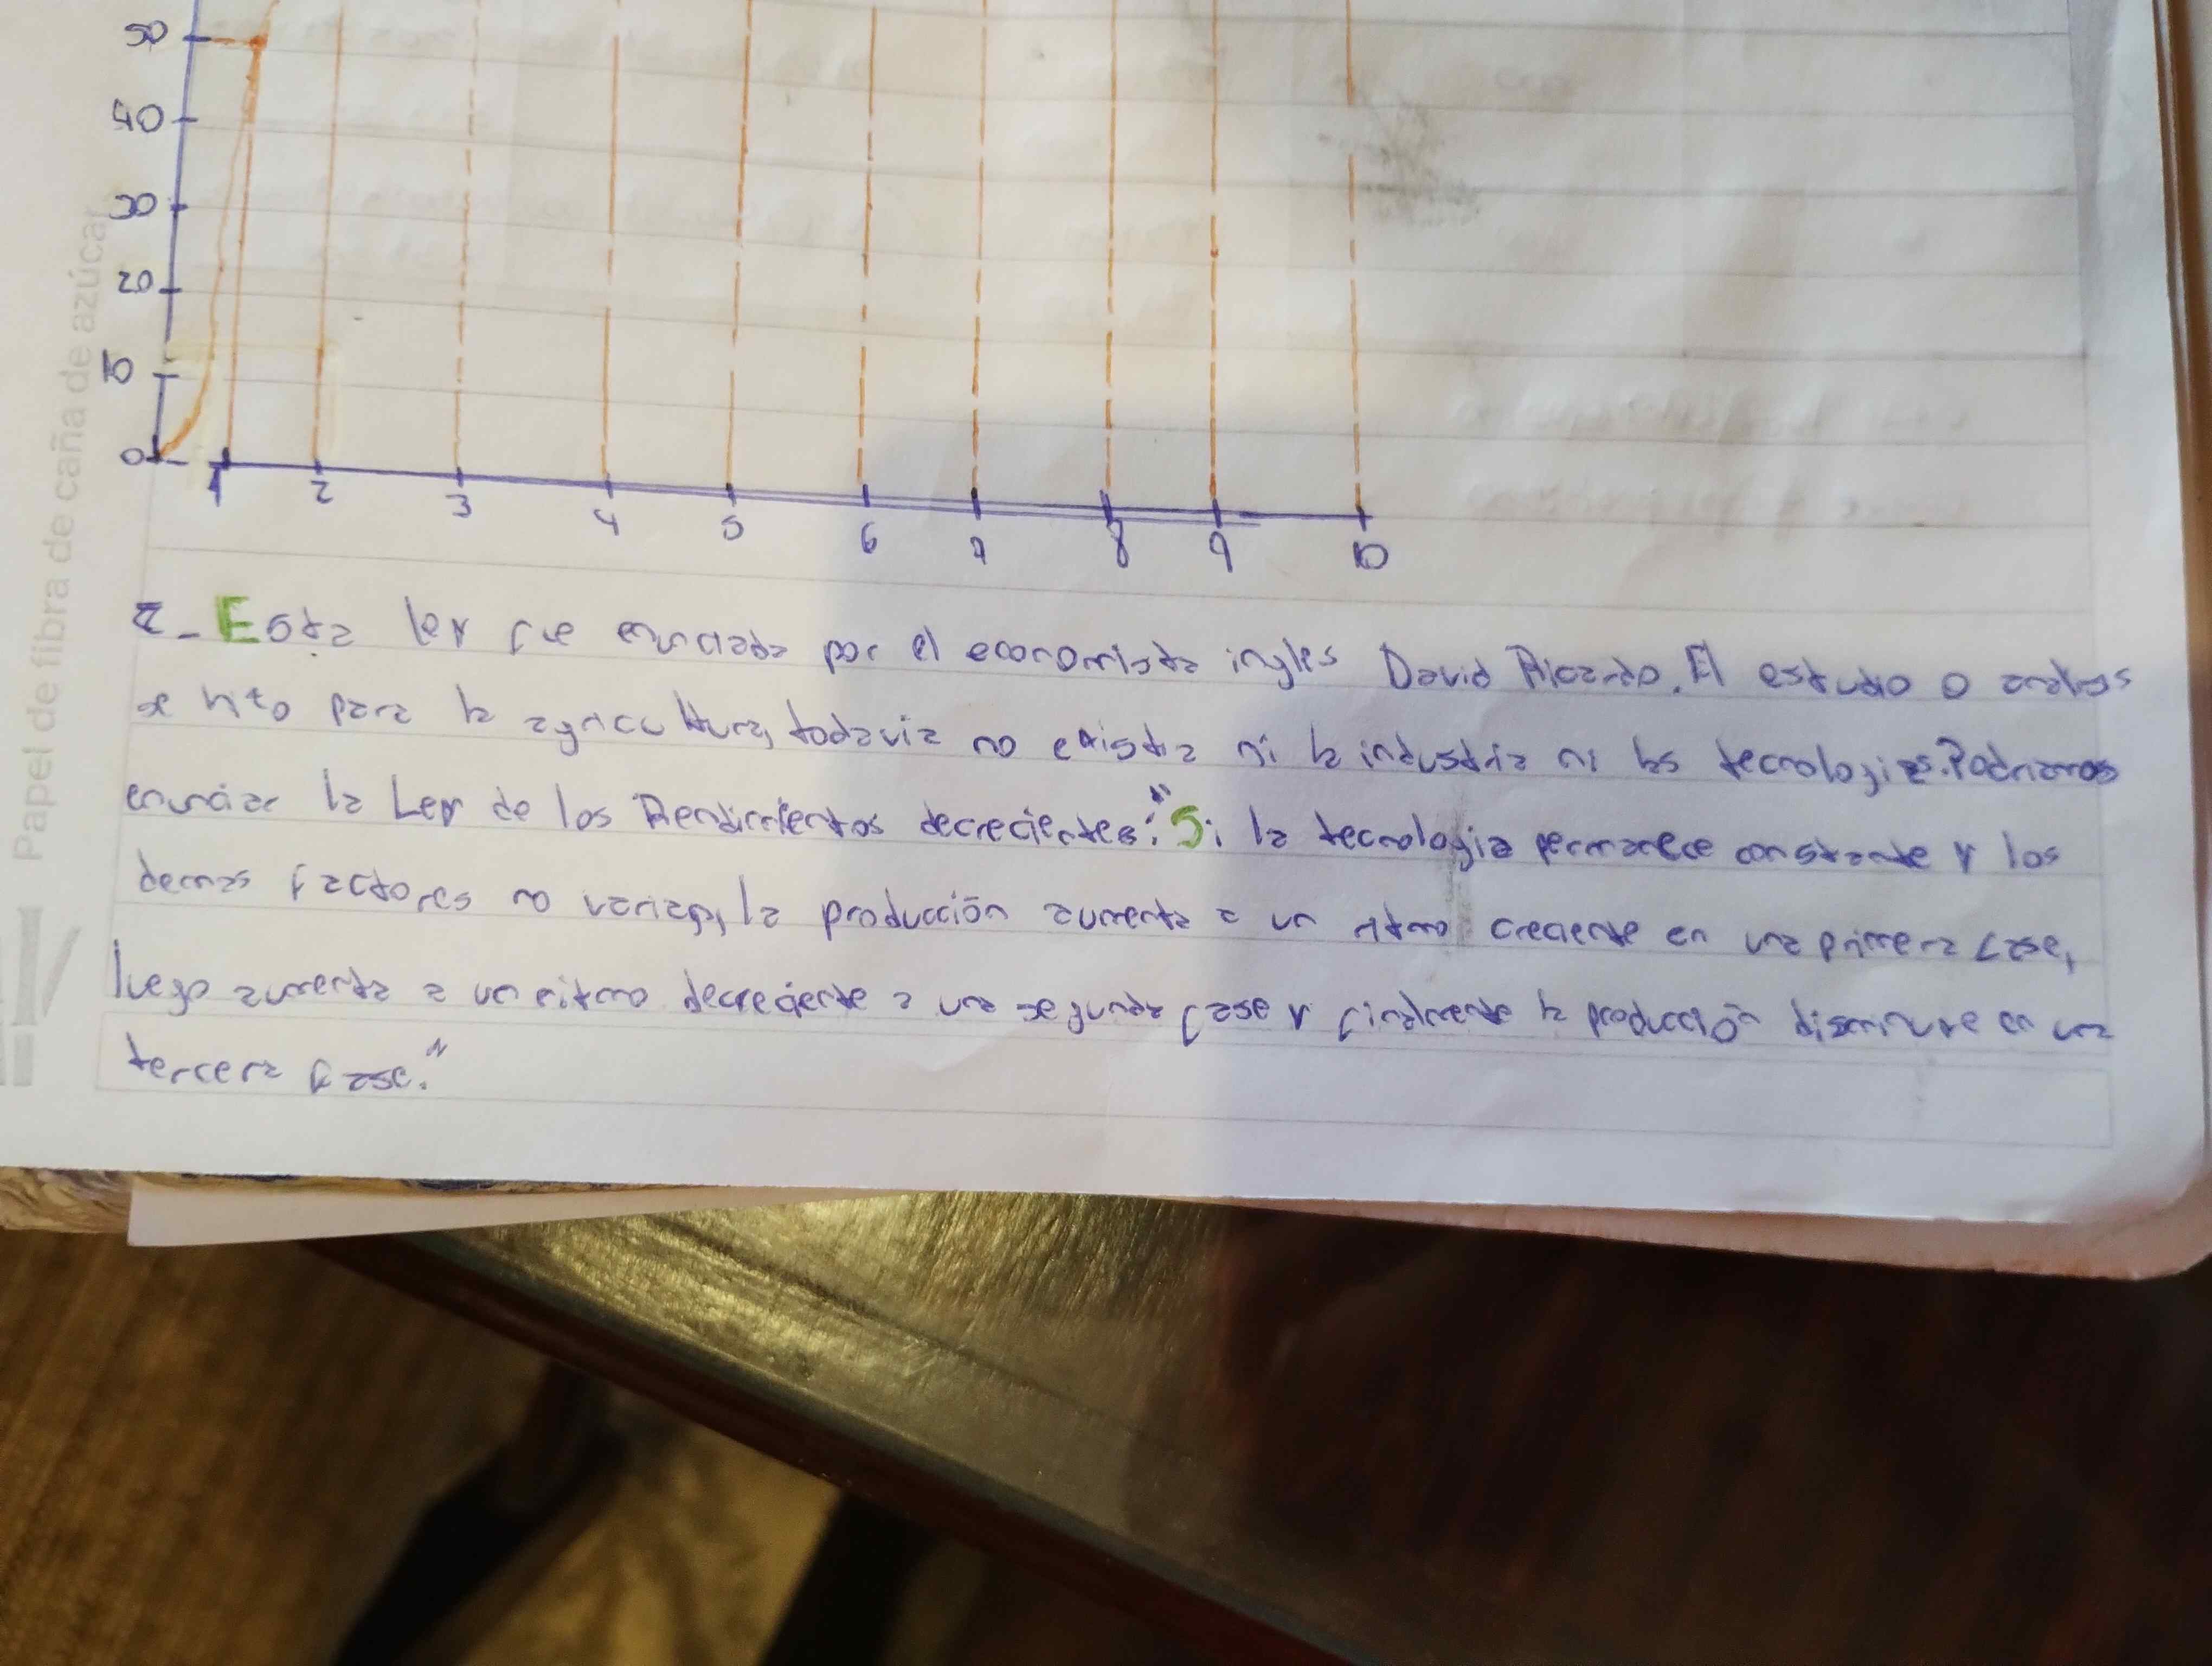 50
40
30
20
10
0
1 2 3 4 5 6 7 8 9 10
2_ Esta ley fue enunciada por el economista ingles David Ricardo. El estudio o analisis
se hizo para la agricultura, todavia no existia ni la industria ni las tecnologias. Podriamos
enunciar la Ley de los Rendimientos decrecientes: "Si la tecnologia permanece constante y los
demas factores no varian, la producción aumenta a un ritmo creciente en una primera fase,
luego aumenta a un ritmo decreciente a una segunda fase y finalmente la producción disminuye en una
tercera fase."
Papel de fibra de caña de azúcar